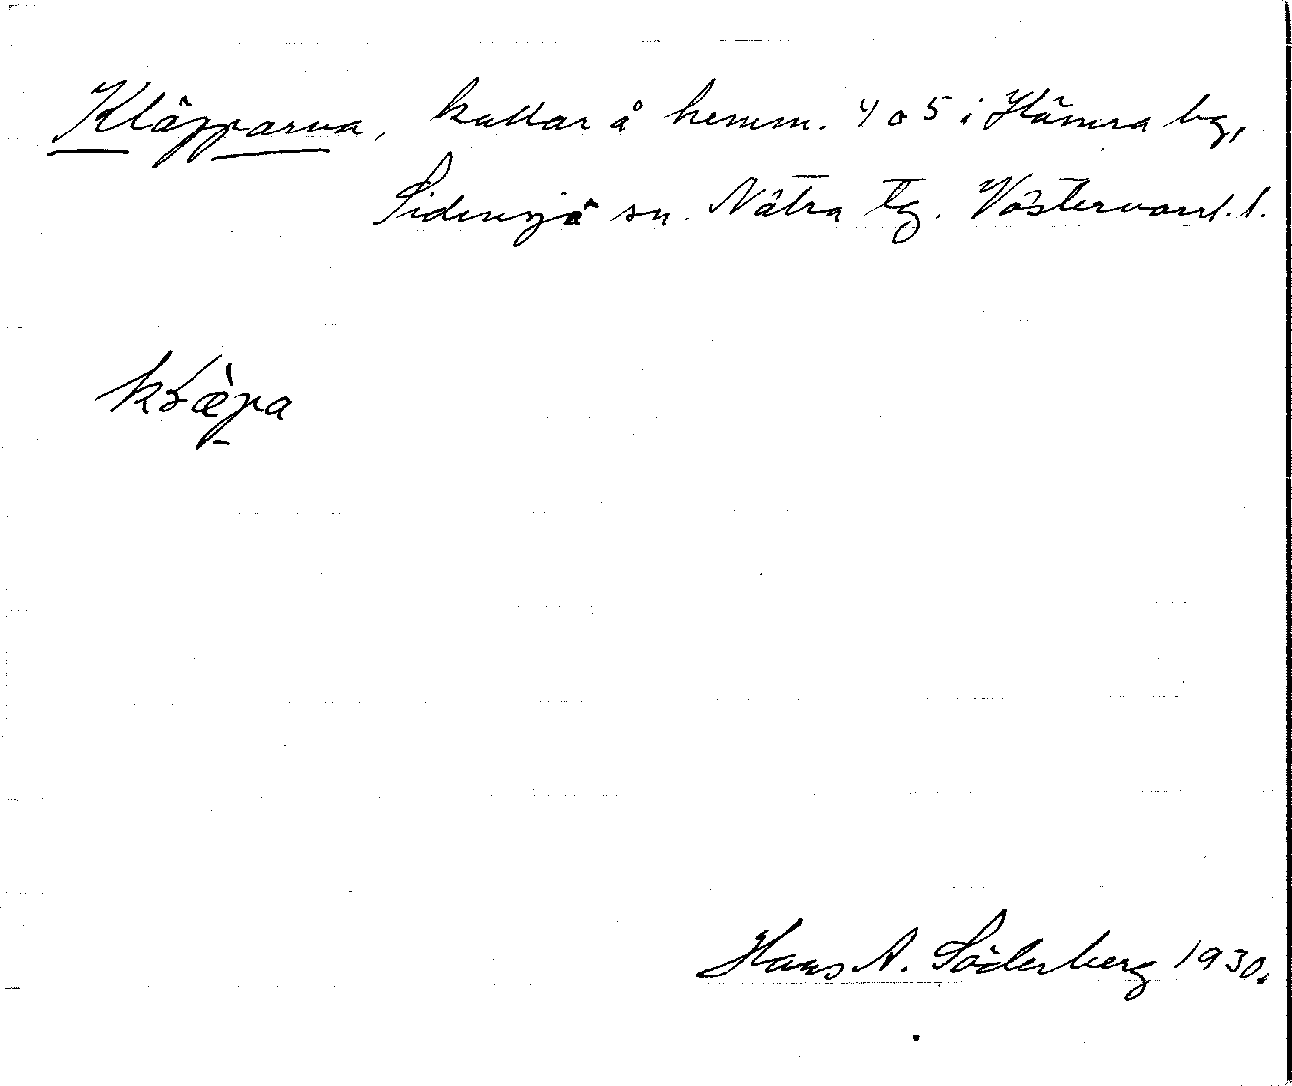 Kläpparna, kullar å hemm. 4 o 5 i Hämra by,
Sidensjö sn. Nätra tg. Västernorrl. l.
kɫæ̀pa
Hans A. Söderberg 1930.